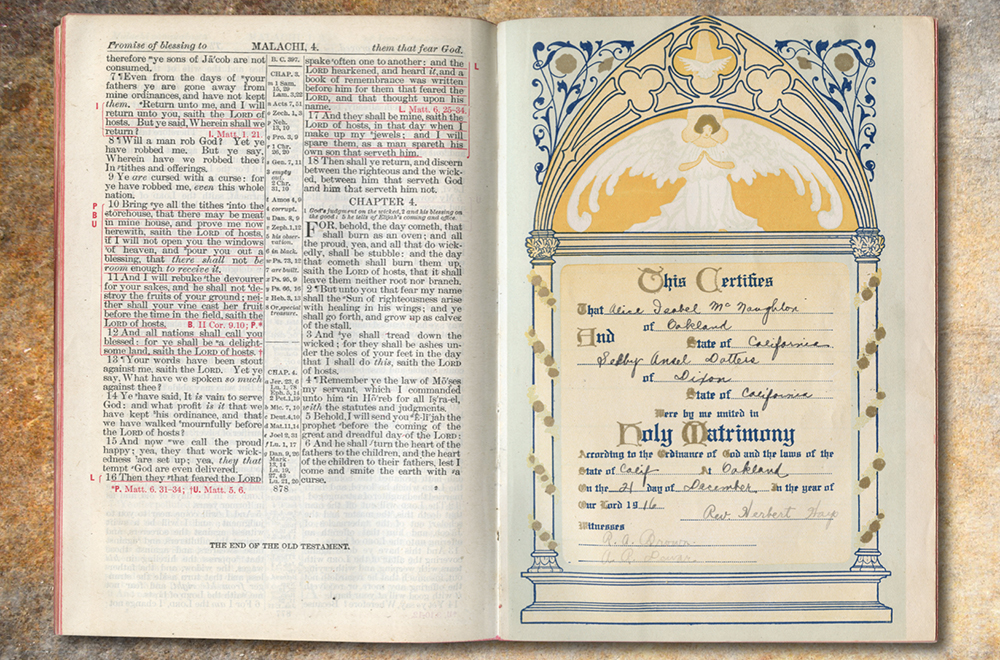 Promise of blessing to MALACHI, 4. them that fear God.
therefore ye sons of Jā'cob are not
consumed.
7 ¶ Even from the days of your
fathers ye are gone away from
mine ordinances, and have not kept
them. Return unto me, and I will
return you, saith the LORD of
hosts. But ye said, Wherein shall we
return?
I. Matt. 1. 21.
8 ¶ Will a man rob God? Yet ye
have robbed me. But ye say,
Wherein have we robbed thee?
In tithes and offerings.
9 Ye are cursed with a curse: for
ye have robbed me, even this whole
nation.
P
B
U
10 Bring ye all the tithes into the
storehouse, that there may be meat
in mine house, and prove me now
herewith, saith the LORD of hosts,
if I will not open you the windows
of heaven, and pour you out a
blessing, that there shall not be
room enough to receive it.
11 And I will rebuke the devourer
for your sakes, and he shall not de-
stroy the fruits of your ground; nei-
ther shall your vine cast her fruit
before the time in the field, saith the
LORD of hosts. B. II Cor. 9.10; P.*
12 And all nations shall call you
blessed: for ye shall be a delight-
some land, saith the LORD of hosts. †
13 ¶ Your words have been stout
against me, saith the LORD. Yet ye
say, What have we spoken so much
against thee?
14 Ye have said, It is vain to serve
God: and what profit is it that we
have kept his ordinance, and that
we have walked mournfully before
the LORD of hosts?
15 And now we call the proud
happy; yea, they that work wick-
edness are set up; yea, they that
tempt God are even delivered.
L 16 Then they that feared the LORD
*P. Matt. 6. 31-34; †U. Matt. 5. 6.
B. C. 397.
CHAP. 3.
m 1 Sam.
15, 29
Lam. 3,22
n Acts 7, 51
o Zech. 1, 3
p Neh.
13, 10
q Pro. 3, 9
r 1 Chr.
26, 20
s Gen. 7, 11
3 empty
out.
2 Chr.
31, 10
t Amos 4, 9
4 corrupt.
u Dan. 8, 9
v Zeph. 1, 12
5 his obser-
vation.
6 in black.
w Ps. 73, 12
7 are built.
x Ps. 95, 9
y Ps. 66, 16
z Heb. 3, 13
8 Or, special
treasure.
CHAP. 4.
a Jer. 23, 6
Lu. 1, 78
Eph. 5, 14
2 Pet. 1, 19
b Mic. 7, 10
c Deut. 4, 10
d Mat. 11, 14
e Joel 2, 31
f Lu. 1, 17
g Dan. 9, 26
Mark
13, 14
Lu. 19,
27, 43
Lu. 21, 20
878
spake often one to another: and the L
LORD hearkened, and heard it, and a
book of remembrance was written
before him for them that feared the
LORD, and that thought upon his
name. L. Matt. 6. 25-34.
17 And they shall be mine, saith the
LORD of hosts, in that day when I
make up my jewels; and I will
spare them, as a man spareth his
own son that serveth him.
18 Then shall ye return, and discern
between the righteous and the wick-
ed, between him that serveth God
and him that serveth him not.
CHAPTER 4.
1 God's judgment on the wicked, 2 and his blessing on
the good: 5 he tells of Elijah's coming and office.
FOR, behold, the day cometh, that
shall burn as an oven; and all
the proud, yea, and all that do wick-
edly, shall be stubble: and the day
that cometh shall burn them up,
saith the LORD of hosts, that it shall
leave them neither root nor branch.
2 ¶ But unto you that fear my name
shall the Sun of righteousness arise
with healing in his wings; and ye
shall go forth, and grow up as calves
of the stall.
3 And ye shall tread down the
wicked; for they shall be ashes un-
der the soles of your feet in the day
that I shall do this, saith the LORD
of hosts.
4 ¶ Remember ye the law of Mō'ses
my servant, which I commanded
unto him in Hō'reb for all Iş'ra-el,
with the statutes and judgments.
5 Behold, I will send you Ē-lī'jah the
prophet before the coming of the
great and dreadful day of the LORD:
6 And he shall turn the heart of the
fathers to the children, and the heart
of the children to their fathers, lest I
come and smite the earth with a
curse.
THE END OF THE OLD TESTAMENT.
This Certifies
That Alice Isabel McNaughton
of Oakland
And State of California
Selby Ansel Dotters
of Dixon
State of California
Were by me united in
Holy Matrimony
According to the Ordinance of God and the laws of the
State of Calif At Oakland
On the 21 day of December In the year of
Our Lord 1916
Rev. Herbert Hays
Witnesses
R. A. Brown